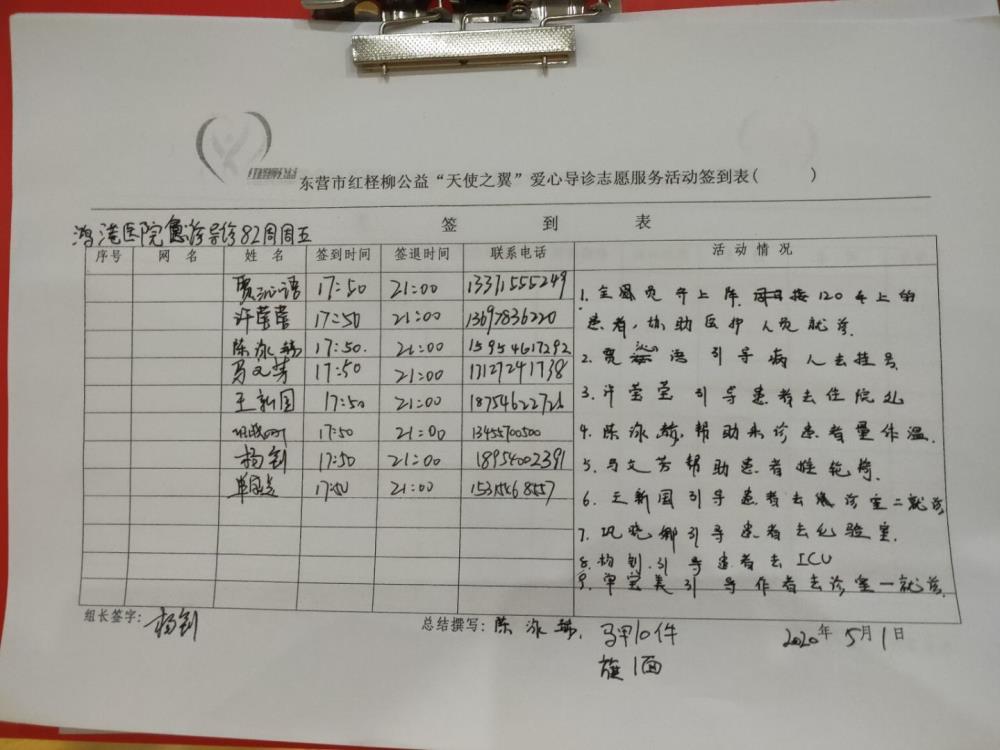 红柽柳公益
东营市红柽柳公益“天使之翼”爱心导诊志愿服务活动签到表( )
签 到 表
鸿港医院急诊导诊82周周五
序号 网名 姓名 签到时间 签退时间 联系电话 活动情况
贾沁语 17:50 21:00 13371555249
许莹莹 17:50 21:00 13697836220
陈泳赫 17:50. 21:00 15954617292
马文芳 17:50 21:00 17127241738
王新国 17:50 21:00 18754622726
17:50 21:00 13455700500
杨钊 17:50 21:00 18954002391
17:50 21:00
1. 全员 上岸. 接120车上的
患者,协助医护人员就诊.
2. 贾 语 引导病人去挂号
3. 许莹莹 引导患者去住院处
4. 陈泳赫,帮助来诊患者量体温.
5. 马文芳帮助患者推轮椅
6. 王新国引导患者去急诊室二就诊
7. 巩晓娜引导患者去化验室.
8. 杨钊.引导患者去ICU
9. 单 美引导 者去诊室一就诊.
组长签字: 杨钊
总结撰写: 陈泳赫. 马甲10件
旗1面
2020年5月1日